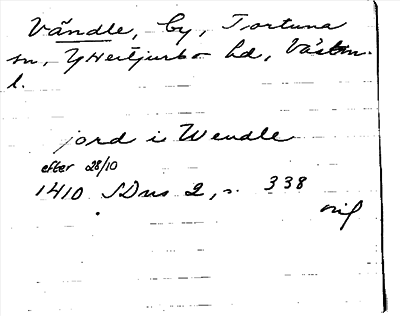 Vändle, by, Tortuna
sn, Yttertjurbo hd, Västm.
l.
jord i Wendle
efter 28/10
1410 SDns 2, s. 338